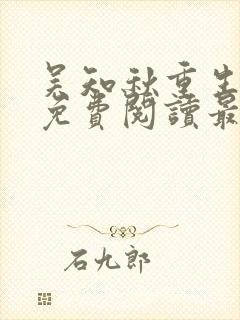 吴知秋重生
免費閱讀最
石九郎